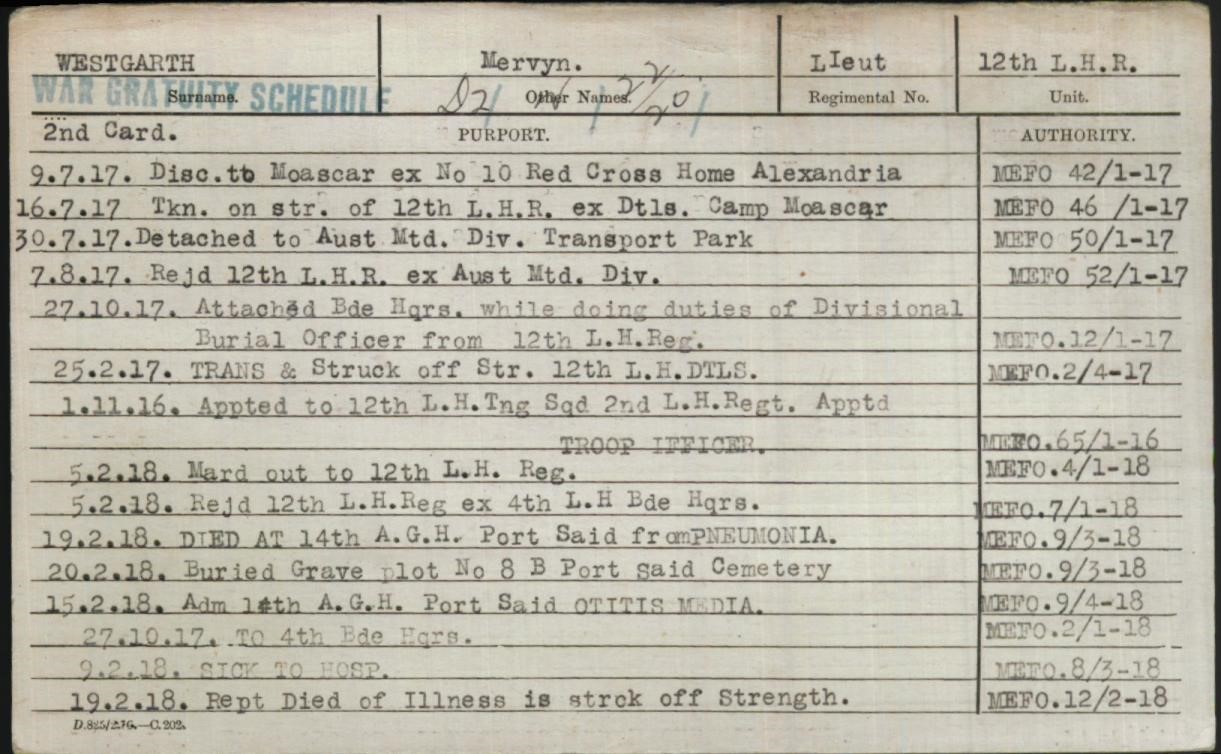 WESTGARTH Mervyn. LIeut 12th L.H.R.
WAR GRATUITY SCHEDULE
Surname. Other Names. Regimental No. Unit.
2nd Card. PURPORT. AUTHORITY.
9.7.17. Disc.to Moascar ex No 10 Red Cross Home Alexandria MEFO 42/1-17
16.7.17 Tkn. on str. of 12th L.H.R. ex Dtls. Camp Moascar MEFO 46 /1-17
30.7.17.Detached to Aust Mtd. Div. Transport Park MEFO 50/1-17
7.8.17. Rejd 12th L.H.R. ex Aust Mtd. Div. MEFO 52/1-17
27.10.17. Attached Bde Hqrs. while doing duties of Divisional
Burial Officer from 12th L.H.Reg. MEFO.12/1-17
25.2.17. TRANS & Struck off Str. 12th L.H.DTLS. MEFO.2/4-17
1.11.16. Appted to 12th L.H.Tng Sqd 2nd L.H.Regt. Apptd
TROOP IFFICER. MEFO.65/1-16
5.2.18. Mard out to 12th L.H. Reg. MEFO.4/1-18
5.2.18. Rejd 12th L.H.Reg ex 4th L.H Bde Hqrs. MEFO.7/1-18
19.2.18. DIED AT 14th A.G.H. Port Said fromPNEUMONIA. MEFO.9/3-18
20.2.18. Buried Grave plot No 8 B Port Said Cemetery MEFO.9/3-18
15.2.18. Adm 14th A.G.H. Port Said OTITIS MEDIA. MEFO.9/4-18
27.10.17. TO 4th Bde Hqrs. MEFO.2/1-18
9.2.18. SICK TO HOSP. MEFO.8/3-18
19.2.18. Rept Died of Illness is strck off Strength. MEFO.12/2-18
D.825/2.16.—C.202.